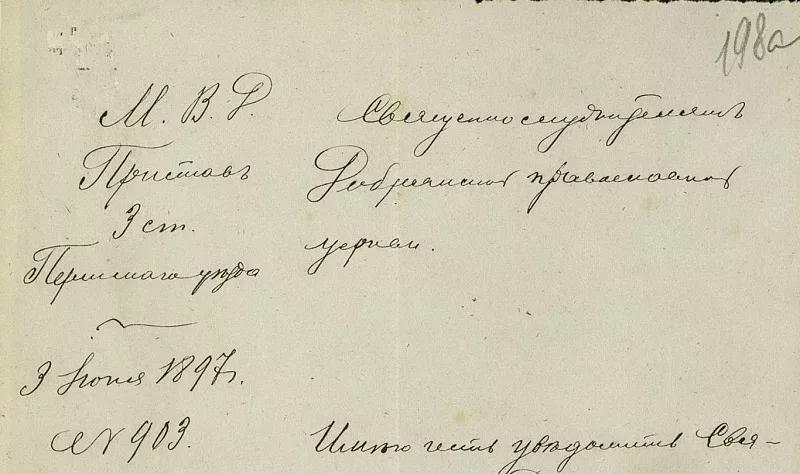 198а
М. В. Д.
Пристав
3 ст.
Пермскаго уѣзда
3 Июня 1897 г.
№ 903.
Священнослужителямъ
Добрянской православной
церкви.
Имѣю честь увѣдомить Свя-